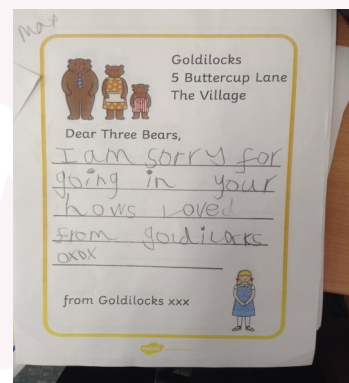 Max
Goldilocks
5 Buttercup Lane
The Village
Dear Three Bears,
I am sorry for
going in your
hows loved
from goldilocks
oxox
from Goldilocks xxx